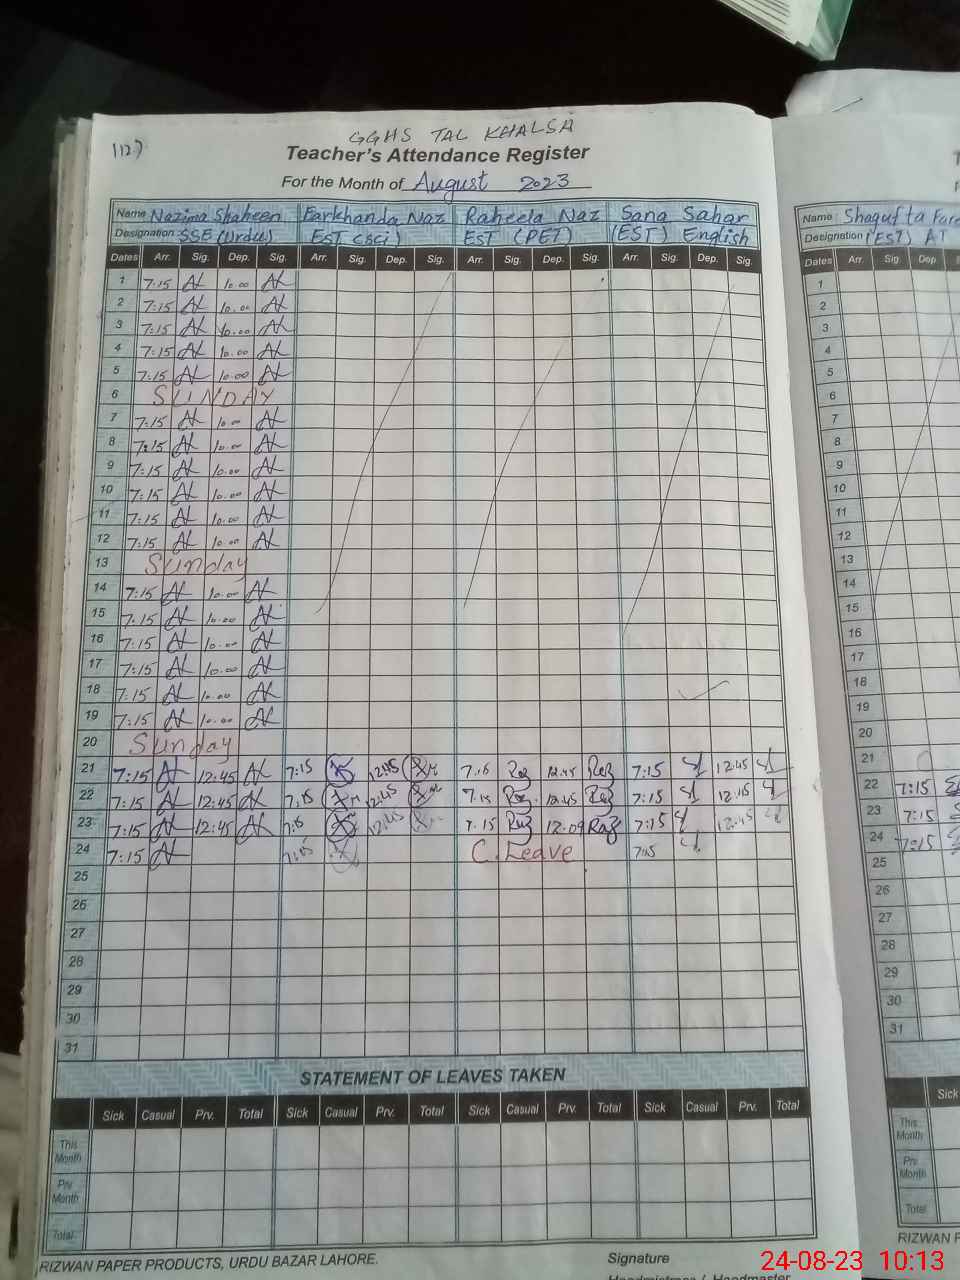 GGHS TAL KHALSA
Teacher's Attendance Register
For the Month of August 2023
Name Nazima Shaheen Farkhanda Naz Raheela Naz Sana Sahar
Designation: SSE (Urdu) EST (Sci) EST (PET) (EST) English
Dates Arr. Sig. Dep. Sig. Arr. Sig. Dep. Sig. Arr. Sig. Dep. Sig. Arr. Sig. Dep. Sig.
1 7:15 10.00
2 7:15 10.00
3 7:15 10.00
4 7:15 10.00
5 7:15 10.00
6 SUNDAY
7 7:15 10.00
8 7:15 10.00
9 7:15 10.00
10 7:15 10.00
11 7:15 10.00
12 7:15 10.00
13 Sunday
14 7:15 10.00
15 7:15 10.00
16 7:15 10.00
17 7:15 10.00
18 7:15 10.00
19 7:15 10.00
20 Sunday
21 7:15 12:45 7:15 12:45 7:15 12:45 7:15 12:45
22 7:15 12:45 7:15 12:45 7:15 12:45 7:15
23 7:15 12:45 12:45 7:15 12:09 7:15 12:45
24 7:15 C. Leave 7:15
25
26
27
28
29
30
31
STATEMENT OF LEAVES TAKEN
Sick Casual Prv. Total Sick Casual Prv. Total Sick Casual Prv. Total Sick Casual Prv. Total
This Month
Prv Month
Total
RIZWAN PAPER PRODUCTS, URDU BAZAR LAHORE.
Signature
Headmistress / Headmaster
Name: Shagufta
Designation (EST) AT
Dates Arr. Sig. Dep
1
2
3
4
5
6
7
8
9
10
11
12
13
14
15
16
17
18
19
20
21
22 7:15
23 7:15
24 7:15
25
26
27
28
29
30
31
Sick
This Month
Prv Month
Total
RIZWAN
24-08-23 10:13